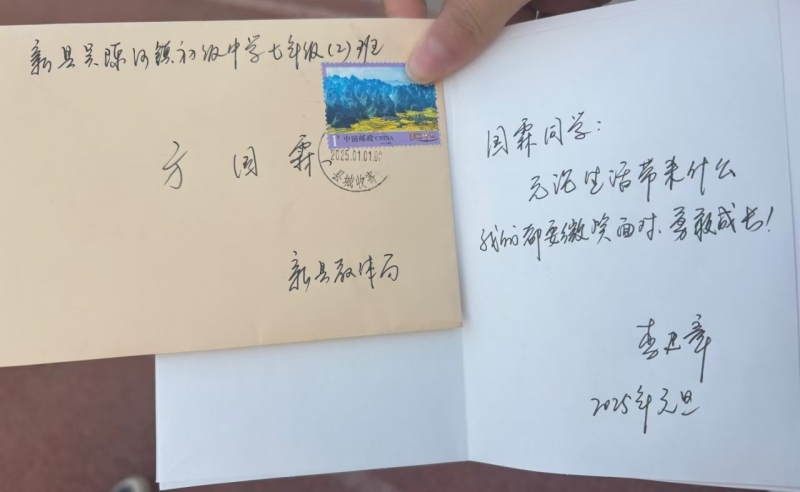 新县吴陈河镇初级中学七年级(2)班
方国霖
新县教体局
中国邮政 CHINA
2025.01.01.0
县城收寄
国霖同学:
无论生活带来什么
我们都要微笑面对、勇敢成长!
2025年元旦